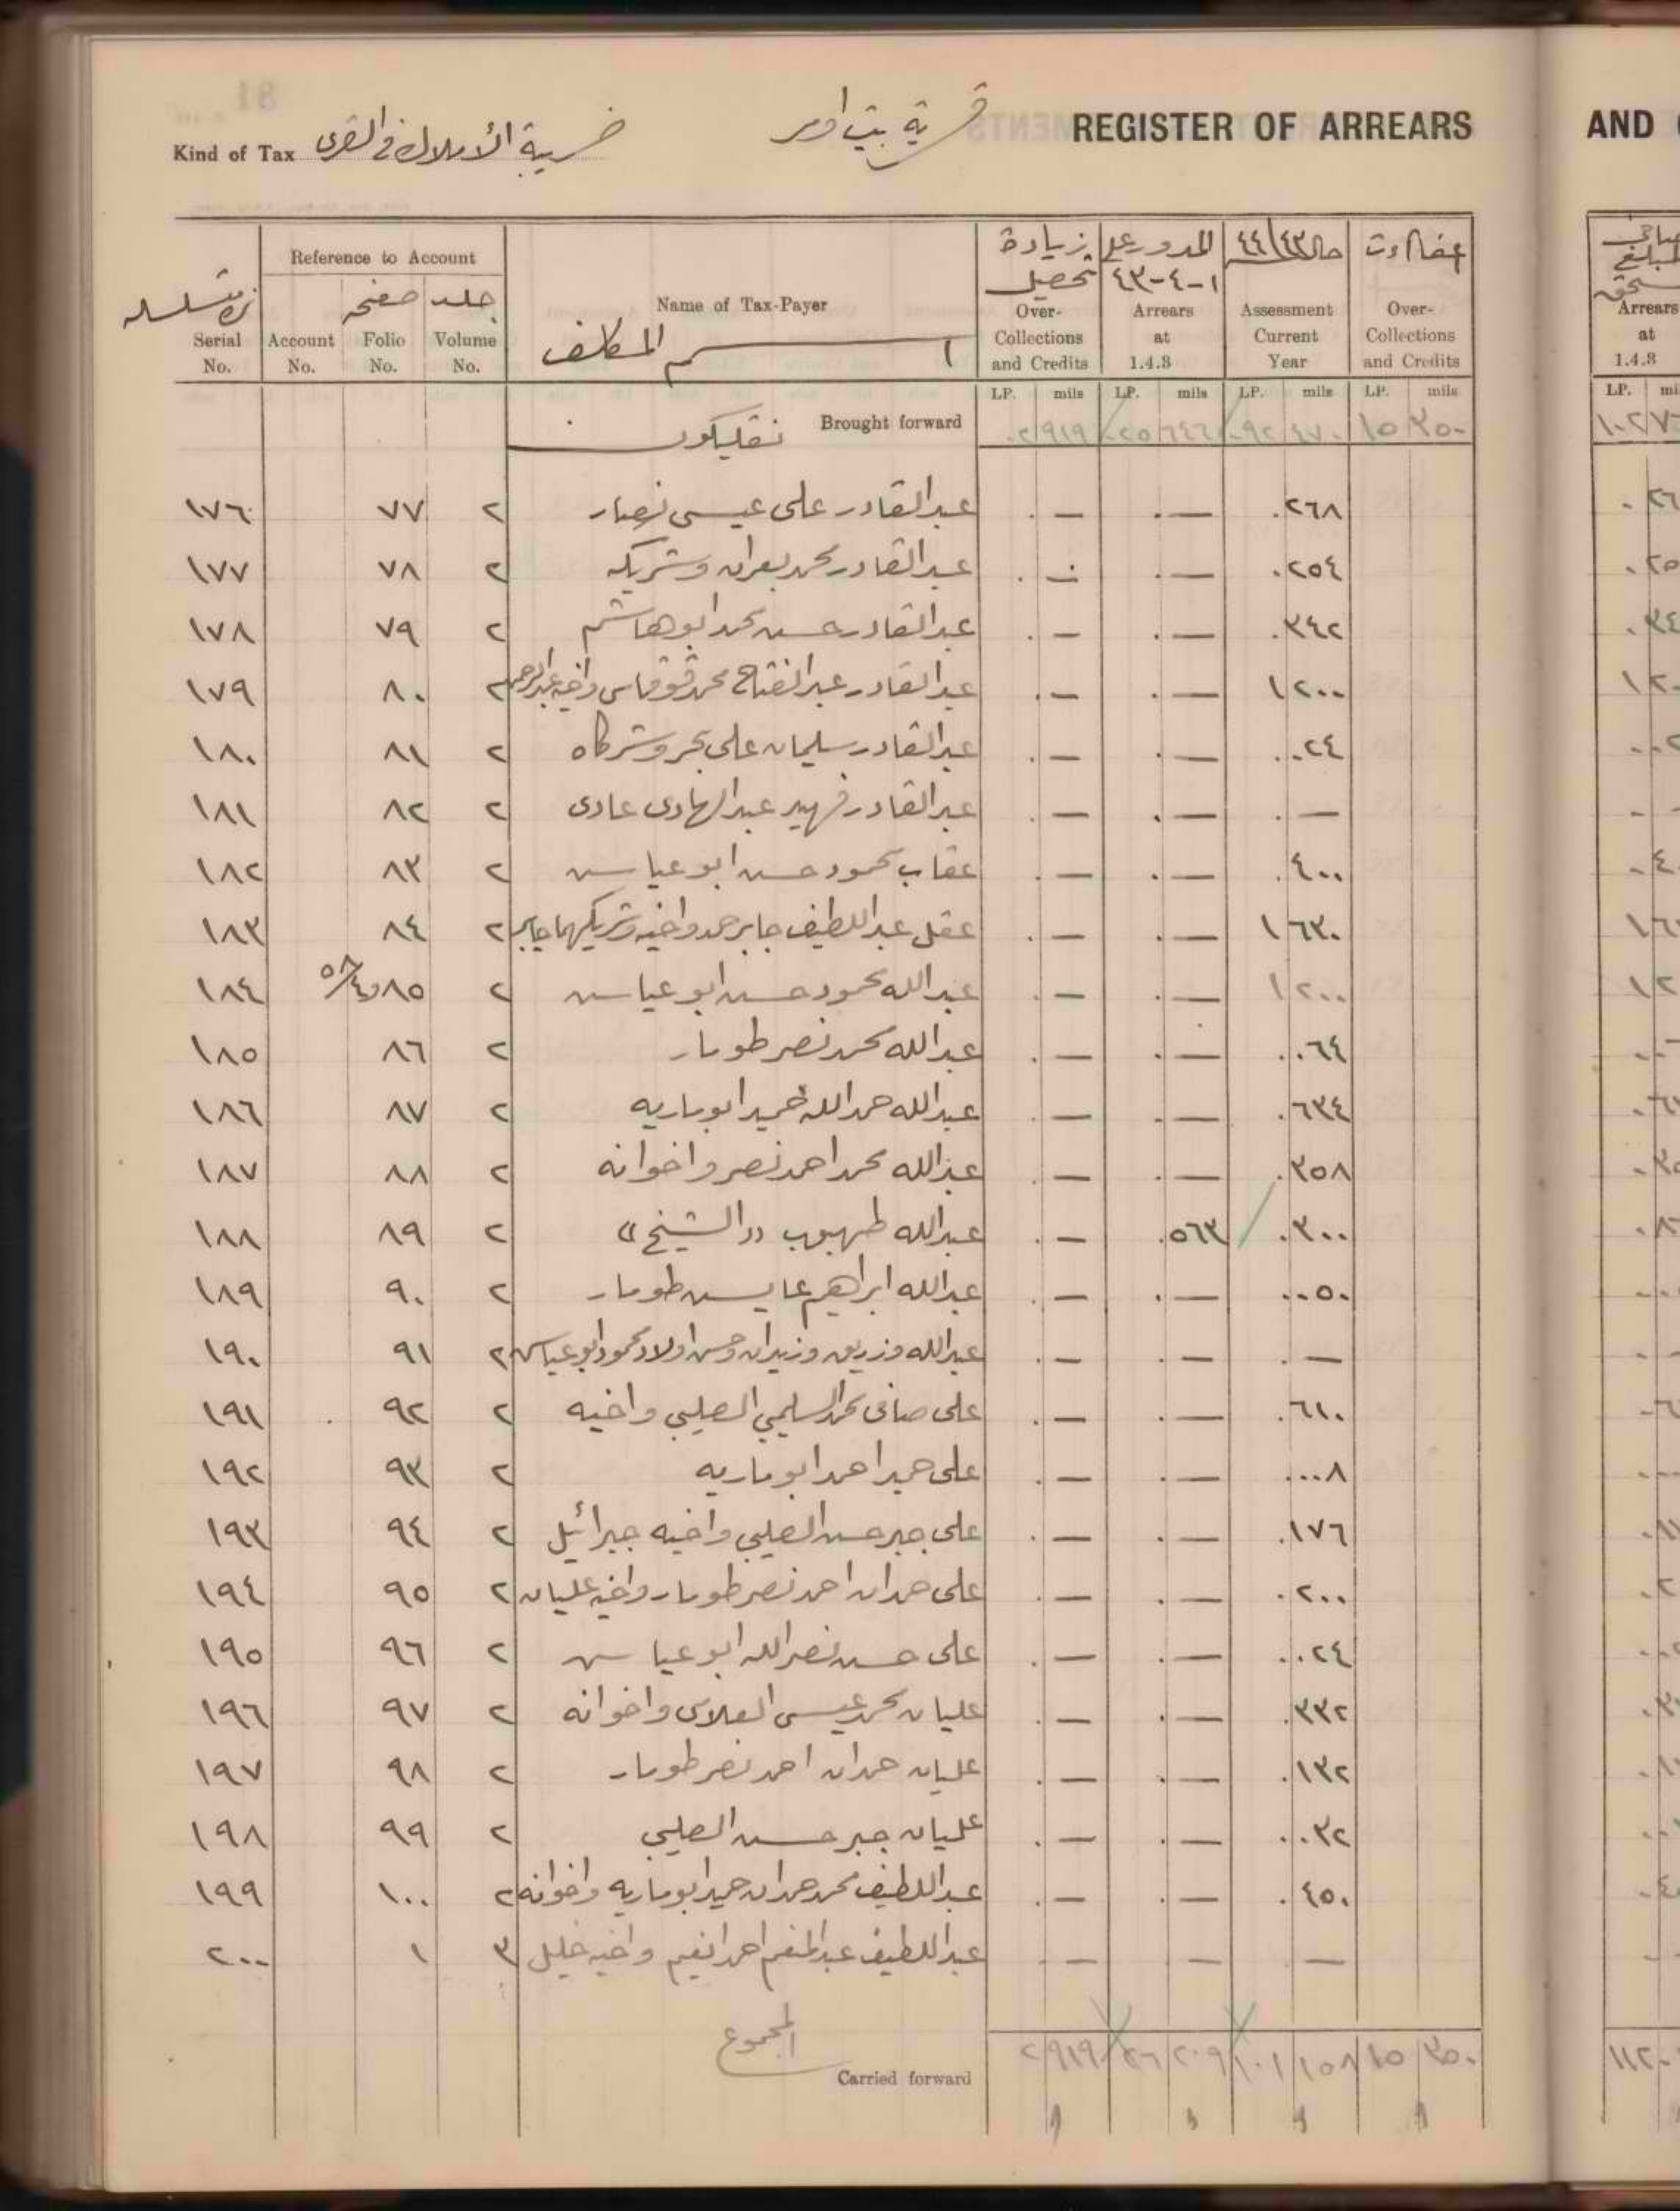 REGISTER OF ARREARS
قرية بيت امر
Kind of Tax ضريبة الأملاك في القرى
AND
Serial No.
Reference to Account
Account No.
صفحه Folio No.
جلد Volume No.
Name of Tax-Payer
اسم المكلف
زيادة تحصيل Over-Collections and Credits
المدور على ١-٤-٤٣ Arrears at 1.4.3
حالة ٤٤/٤٣ Assessment Current Year
Over-Collections and Credits
المبلغ Arrears at 1.4.3
LP. mils LP. mils LP. mils LP. mils LP.
Brought forward ٢ ٩١٩ ٢٥ ٦٤٦ ٩٢ ٤٧٠ ١٥ ٣٥٠
١٧٦ ٧٧ ٢ عبد القادر علي عيسى نصار — — ٠٢٦٨
١٧٧ ٧٨ ٢ عبد القادر محمد وشريكه — — ٠٢٥٤
١٧٨ ٧٩ ٢ عبد القادر حسن محمد ابو هاشم — — ٠٣٤٢
١٧٩ ٨٠ ٢ عبد القادر عبد الفتاح محمد قوقاس واخيه — — ١٢٠٠
١٨٠ ٨١ ٢ عبد القادر سليمان علي بحر وشركاه — — ٠٠٢٤
١٨١ ٨٢ ٢ عبد القادر فهيد عبد الهادى عادى — — —
١٨٢ ٨٣ ٢ عقاب محمود حسن ابو عياش — — ٠٤٠٠
١٨٣ ٨٤ ٢ عقل عبد اللطيف جابر حمد واخيه وشريكهما جابر — — ١٦٣٠
١٨٤ ٨٥ و ٥٨/٤ ٢ عبد الله محمود حسن ابو عياش — — ١٢٠٠
١٨٥ ٨٦ ٢ عبد الله محمد نصر طومار — — ٠٠٦٤
١٨٦ ٨٧ ٢ عبد الله حمد الله حميد ابو ماريه — — ٠٦٣٤
١٨٧ ٨٨ ٢ عبد الله محمد احمد نصر واخوانه — — ٠٣٥٨
١٨٨ ٨٩ ٢ عبد الله طهبوب "الشيخ" — ٠٥٦٣ ٠٣٠٠
١٨٩ ٩٠ ٢ عبد الله ابراهيم عايش طومار — — ٠٠٥٠
١٩٠ ٩١ ٢ عبد الله وزريق وزيدان وحسن اولاد محمود ابو عياش — — —
١٩١ ٩٢ ٢ علي صافى محمد السليمي الصليبي واخيه — — ٠٦١٠
١٩٢ ٩٣ ٢ علي حميد احمد ابو ماريه — — ٠٠٠٨
١٩٣ ٩٤ ٢ علي جبر حسن الصليبي واخيه جبرائيل — — ٠١٧٦
١٩٤ ٩٥ ٢ علي حمدان احمد نصر طومار واخيه عليان — — ٠٢٠٠
١٩٥ ٩٦ ٢ علي حسن نصر الله ابو عياش — — ٠٠٢٤
١٩٦ ٩٧ ٢ عليان محمد عيسى العلامى واخوانه — — ٠٣٣٢
١٩٧ ٩٨ ٢ عليان حمدان احمد نصر طومار — — ٠١٣٢
١٩٨ ٩٩ ٢ عليان جبر حسن الصليبي — — ٠٠٣٢
١٩٩ ١٠٠ ٢ عبد اللطيف محمد حمدان حميد ابو ماريه واخوانه — — ٠٤٥٠
٢٠٠ ١ ٣ عبد اللطيف عبد المنعم احمد واخيه خليل — — —
المجموع
Carried forward ٢ ٩١٩ ٢٦ ٢٠٩ ١٠١ ١٥٨ ١٥ ٣٥٠